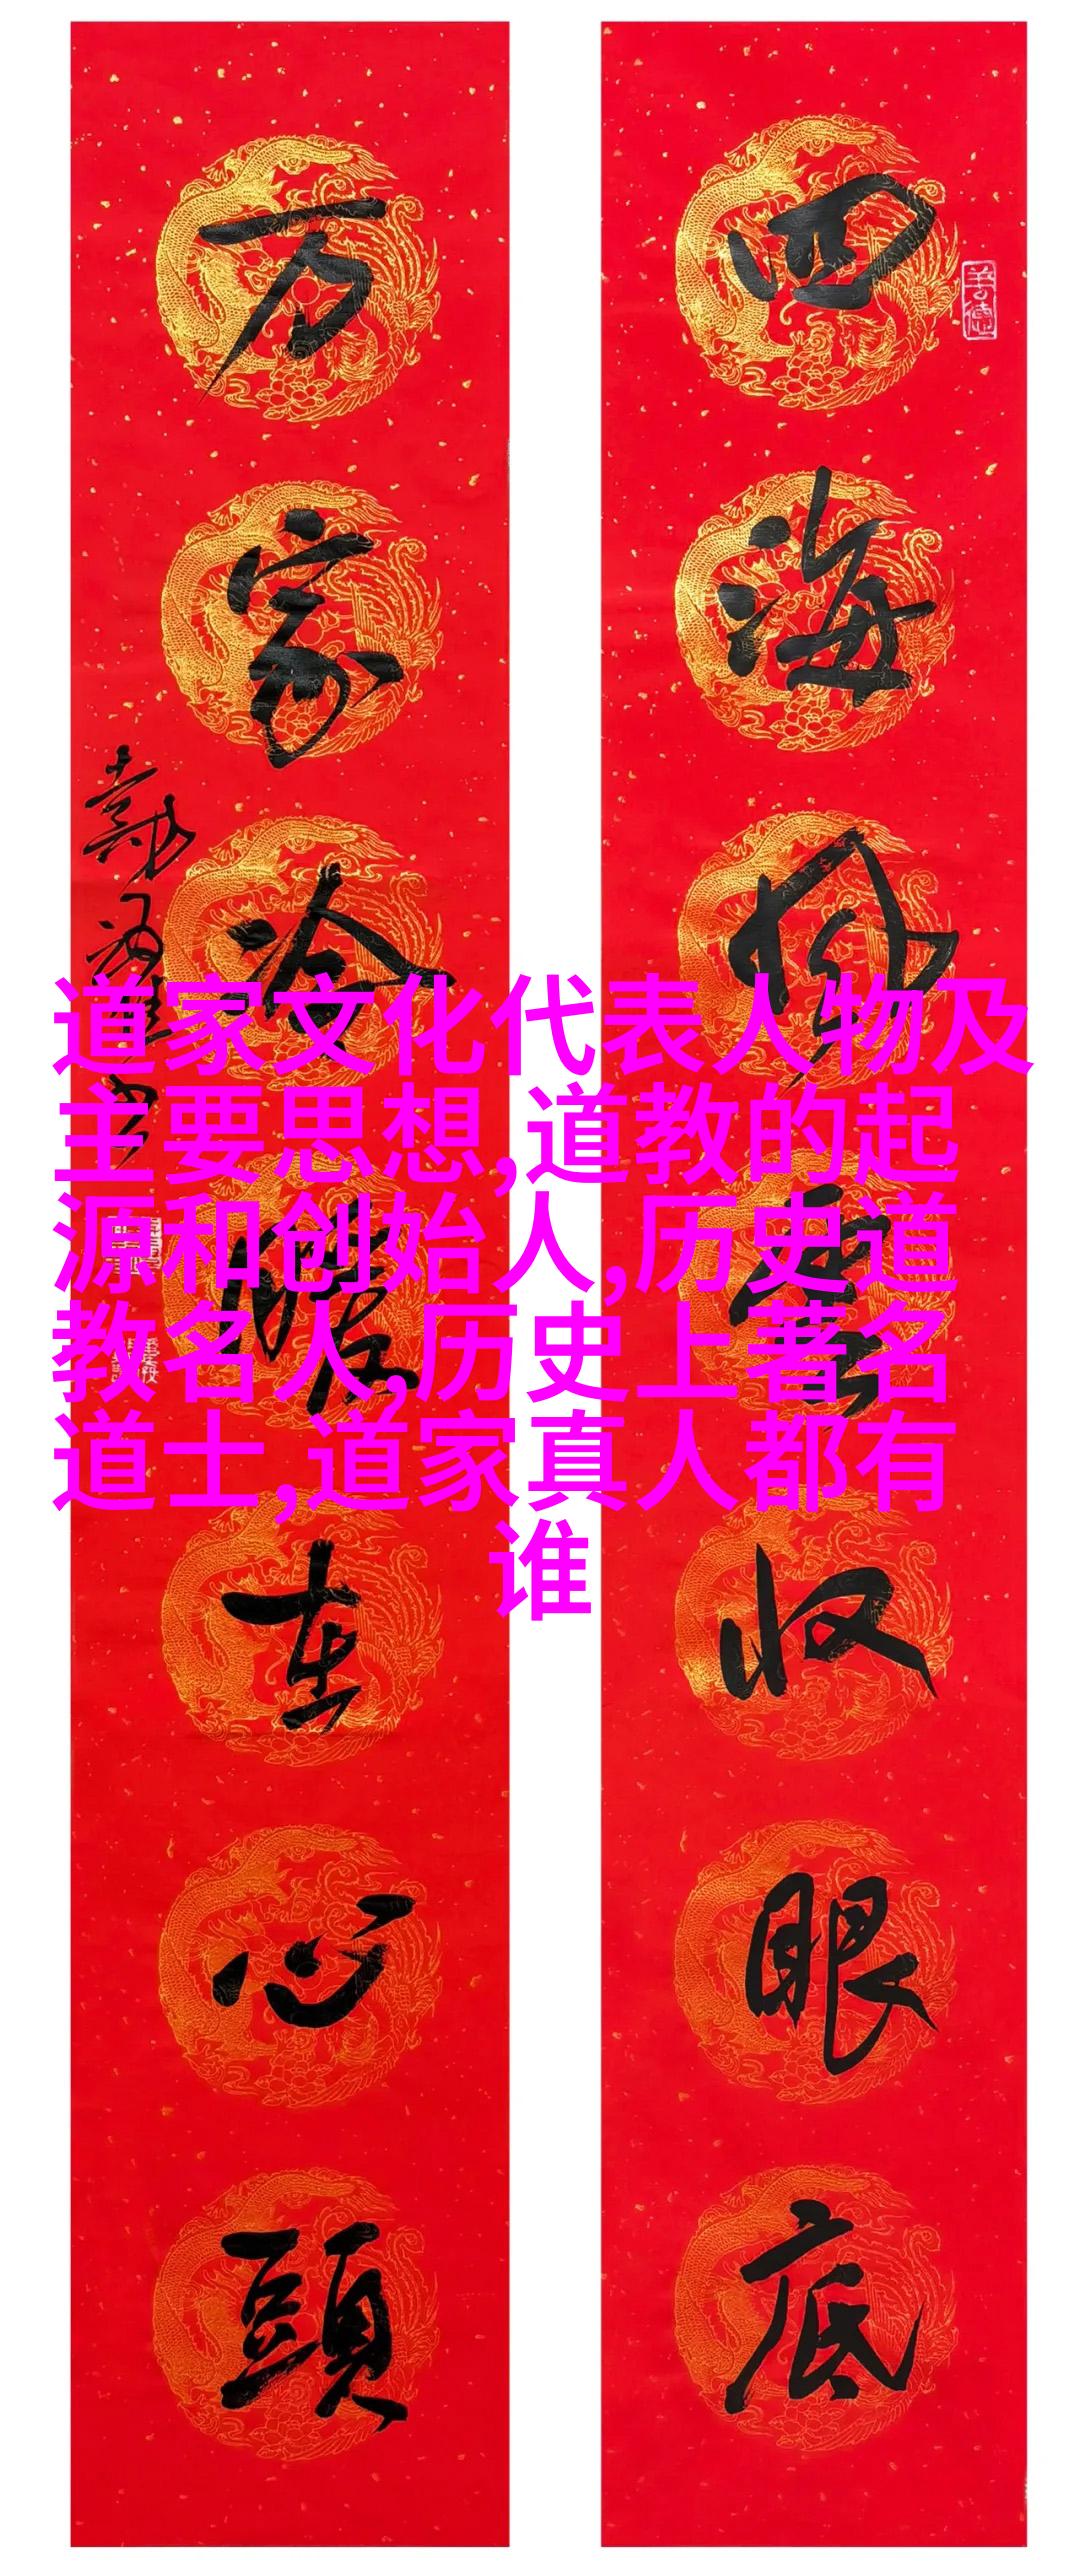 四海风云收眼底
万家冷暖在心头
善德
道家文化代表人物及
主要思想,道教的起
源和创始人,历史道
教名人,历史上著名
道士,道家真人都有
谁